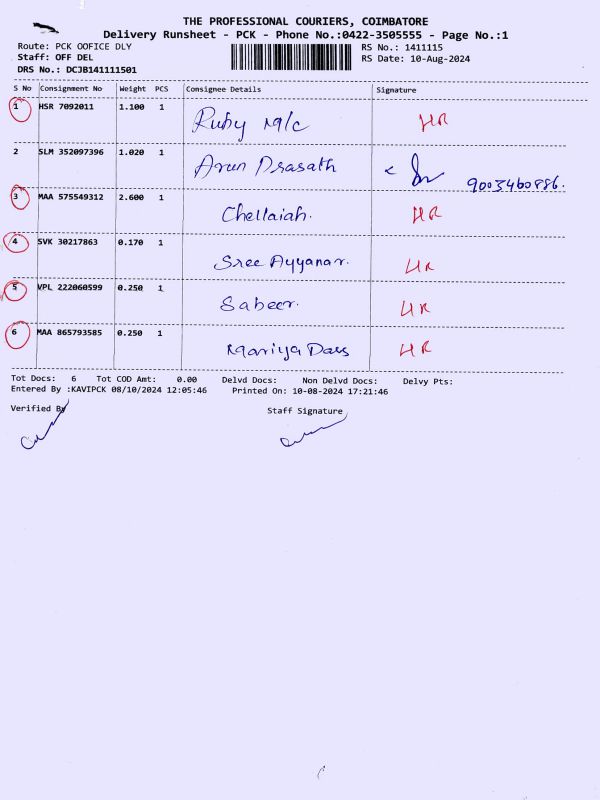 THE PROFESSIONAL COURIERS, COIMBATORE
Delivery Runsheet - PCK - Phone No.:0422-3505555 - Page No.:1
Route: PCK OOFICE DLY RS No.: 1411115
Staff: OFF DEL RS Date: 10-Aug-2024
DRS No.: DCJB141111501
S No Consignment No Weight PCS Consignee Details Signature
1 HSR 7092011 1.100 1 Ruby M/c HR
2 SLM 352097396 1.020 1 Arun Prasath
9003460886.
3 MAA 575549312 2.600 1 Chellaiah. HR
4 SVK 30217863 0.170 1 Sree Ayyanar. HR
5 VPL 222060599 0.250 1 Sabeer. HR
6 MAA 865793585 0.250 1 Mariya Dass HR
Tot Docs: 6 Tot COD Amt: 0.00 Delvd Docs: Non Delvd Docs: Delvy Pts:
Entered By :KAVIPCK 08/10/2024 12:05:46 Printed On: 10-08-2024 17:21:46
Verified By Staff Signature